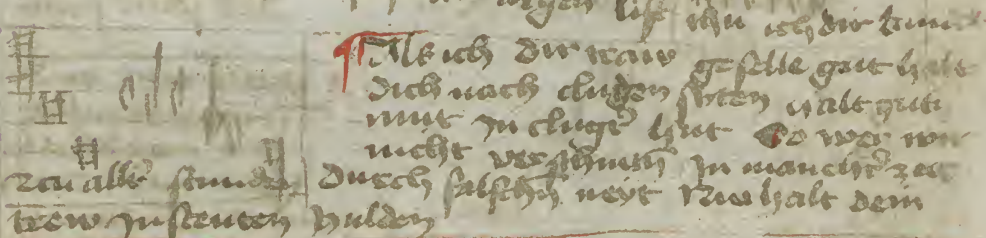 lise thu ich dir kunt
¶ Als ich dir traw geselle gart halt
dich nach clugen syten halt gute
mut In cluger hut So wer wir
nicht vorschmeth In mancher zeit
zcu aller stunden durch falschen neyt Nu halt dein
trew In steuten hulden